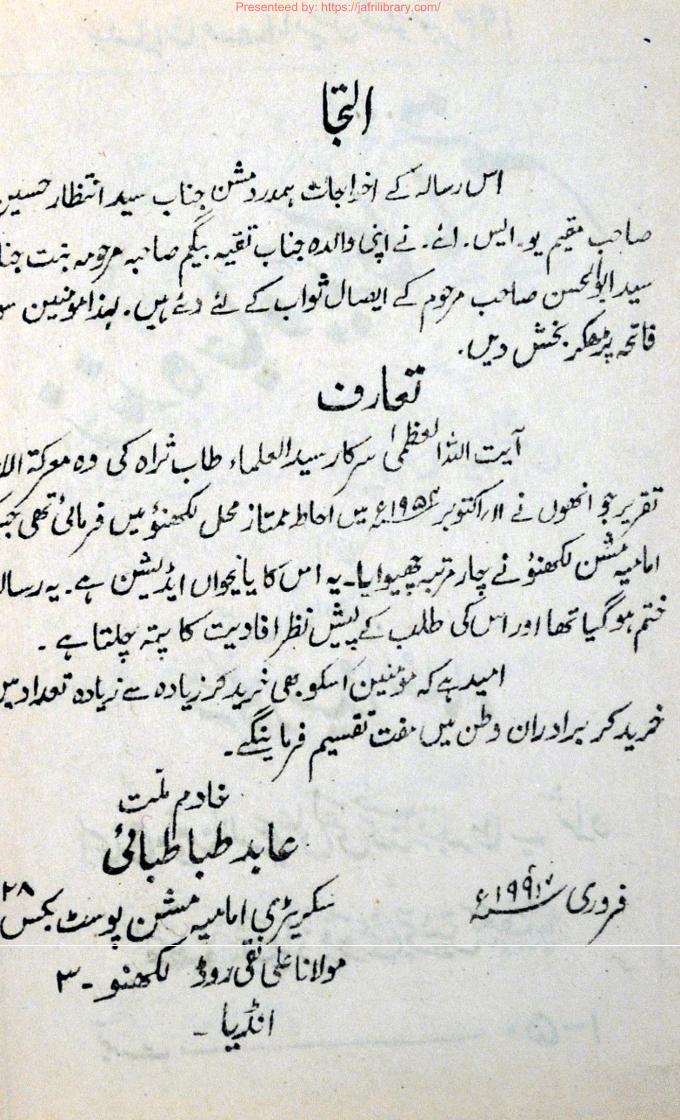 Presenteed by: https://jafrilibrary.com/
التجا
اس رسالہ کے اخراجات ہمدرد مشن جناب سید انتظار حسین
صاحب مقیم یو۔ایس۔اے۔ نے اپنی والدہ جناب تقیہ بیگم صاحبہ مرحومہ بنت
سید ابوالحسن صاحب مرحوم کے ایصال ثواب کے لئے دئے ہیں۔ لہذا مومنین
فاتحہ پڑھکر بخش دیں۔
تعارف
آیت اللہ العظمیٰ سرکار سید العلماء طاب ثراہ کی وہ معرکۃ
تقریر جو انھوں نے ۱۱؍اکتوبر ۱۹۵۴ء میں احاطہ ممتاز محل لکھنؤ میں فرمائی تھی
امامیہ مشن لکھنؤ نے چار مرتبہ چھپوایا۔ یہ اس کا پانچواں ایڈیشن ہے۔ یہ
ختم ہو گیا تھا اور اس کی طلب کے پیش نظر افادیت کا پتہ چلتا ہے ۔
امید ہے کہ مومنین اسکو بھی خرید کر زیادہ سے زیادہ تعداد میں
خرید کر برادران وطن میں مفت تقسیم فرماینگے۔
خادم ملت
عابد طباطبائی
فروری سکریٹری امامیہ مشن پوسٹ بکس ۲۸
مولانا علی نقی روڈ لکھنو ۔۳
انڈیا ۔